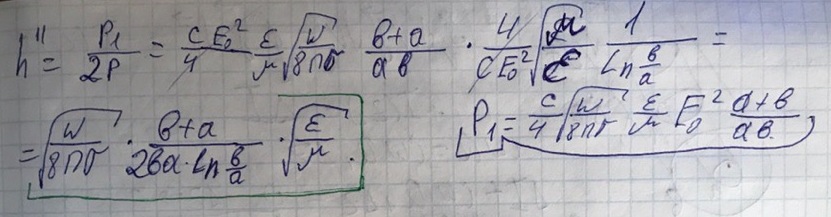 h'' = P₁/2P = c E₀²/4 ε/μ √(ω/8πσ) (b+a)/(ab) · 4/(cE₀²) √(μ/ε) 1/(Ln b/a) =
= √(ω/8πσ) · (b+a)/(2ba·Ln b/a) · √(ε/μ).
P₁ = c/4 √(ω/8πσ) ε/μ E₀² (a+b)/(ab)